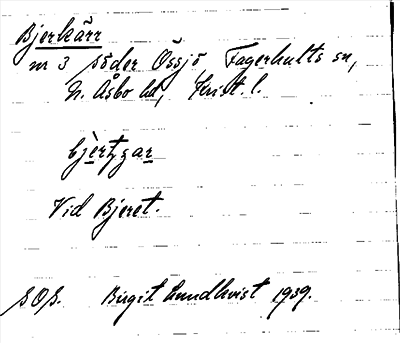 Bjerkärr
nr 3 Söder Össjö Fagerhults sn,
N. Åsbo hd, Krist. l.
Vid Bjeret.
SOS. Birgit Lundkvist 1939.